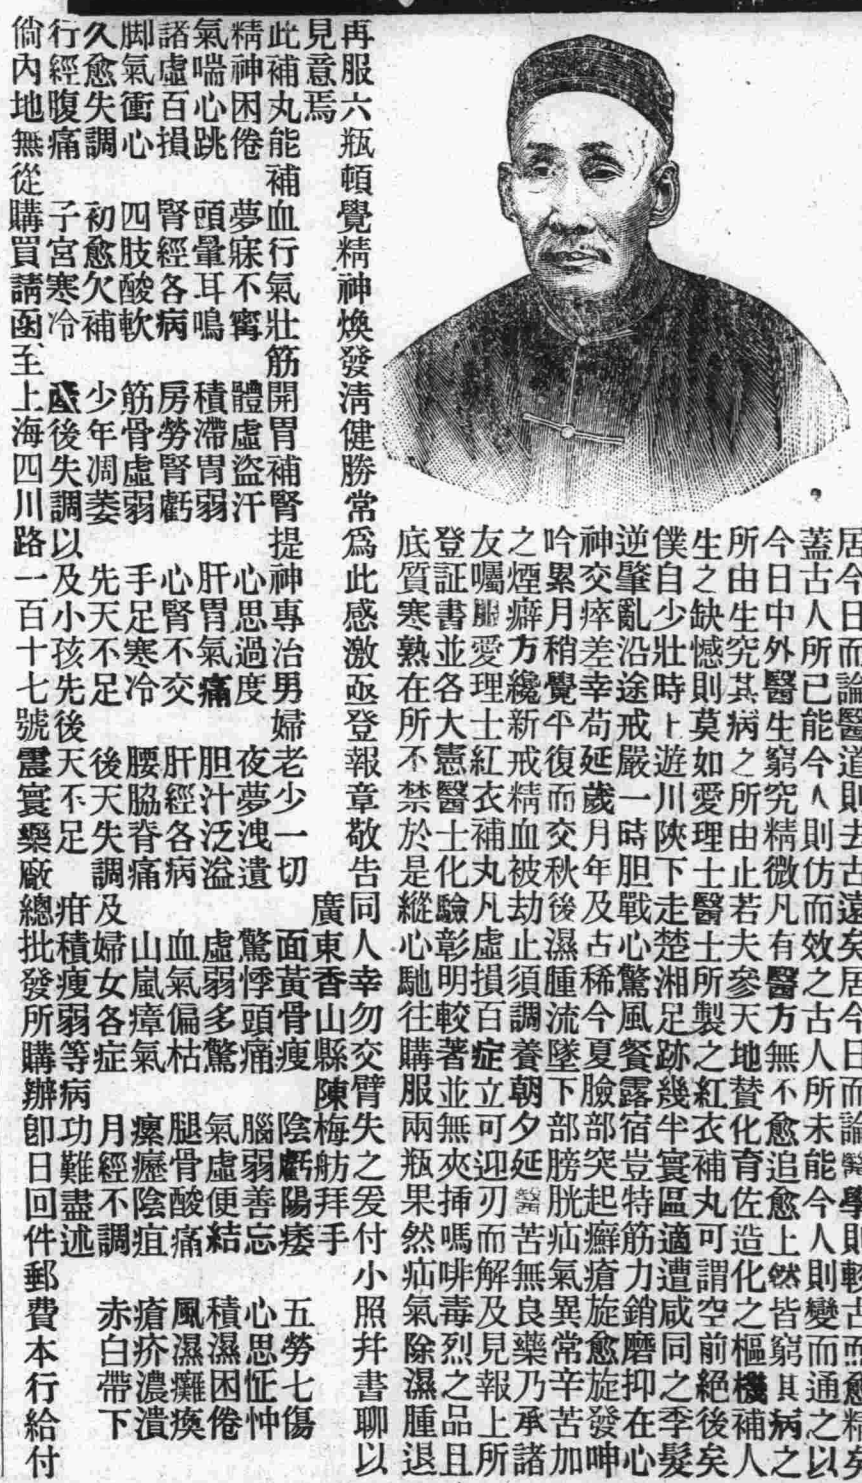 居今日而論醫道則去古遠矣居今日而論醫學則較古而愈精矣
蓋古人所已能今人則仿而效之古人所未能今人則變而通之以
今日中外醫生窮究精微凡有醫方無不愈追愈上然皆窮其病之
所由生究其病之所由止若夫參天地贊化育佐造化之樞機補人
生之缺憾則莫如愛理士醫士所製之紅衣補丸可謂空前絕後矣
僕自少壯時上遊川陝下走楚湘足跡幾半寰區適遭咸同之季髮
逆肇亂沿途戒嚴一時胆戰心驚風餐露宿豈特筋力銷磨抑在心
神交瘁差幸苟延歲月年及古稀今夏臉部突起癬瘡旋愈旋發呻
吟累月稍覺平復而交秋後濕腫流墜下部膀胱疝氣異常辛苦加
之煙癖方纔新戒精血被劫止須調養朝夕延醫苦無良藥乃承諸
友囑服愛理士紅衣補丸凡虛損百症立可迎刃而解及見報上所
登証書並各大憲醫士化驗彰明較著並無夾揷嗎啡毒烈之品且
底質寒熟在所不禁於是縱心馳往購服兩瓶果然疝氣除濕腫退
再服六瓶頓覺精神煥發淸健勝常爲此感激亟登報章敬告同人幸勿交臂失之爰付小照幷書聊以
見意焉 廣東香山縣陳梅舫拜手
此補丸能補血行氣壯筋開胃補腎提神專治男婦老少一切 面黃骨瘦 陰虧陽痿 五勞七傷
精神困倦 夢寐不寗 體虛盜汗 心思過度 夜夢洩遺 驚悸頭痛 腦弱善忘 心思怔忡
氣喘心跳 頭暈耳鳴 積滯胃弱 肝胃氣痛 胆汁泛溢 虛弱多驚 氣虛便結 積濕困倦
諸虛百損 腎經各病 房勞腎虧 心腎不交 肝經各病 血氣偏枯 腿骨酸痛 風濕癱瘓
脚氣衝心 四肢酸軟 筋骨虛弱 手足寒冷 腰脇脊痛 山嵐瘴氣 瘰癧陰疽 瘡疥濃潰
久愈失調 初愈欠補 少年凋萎 先天不足 後天失調及婦女各症 月經不調 赤白帶下
行經腹痛 子宮寒冷 產後失調以及小孩先後天不足 疳積瘦弱等病功難盡述
倘內地無從購買請函至上海四川路一百十七號震寰藥厰總批發所購辦卽日回件郵費本行給付